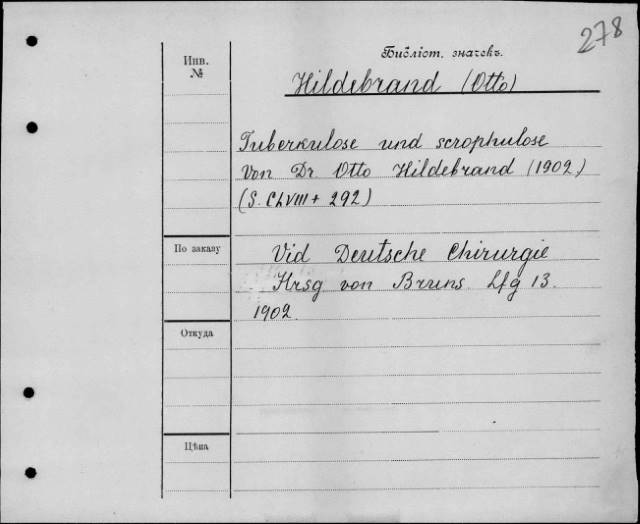 278
Библіот. значекъ.
Инв.
№
Hildebrand (Otto)
Tuberkulose und scrophulose
von Dr Otto Hildebrand (1902)
(S. CLVIII + 292)
По заказу
Vid Deutsche Chirurgie
Hrsg von Bruns Lfg 13.
1902.
Откуда
Цѣна